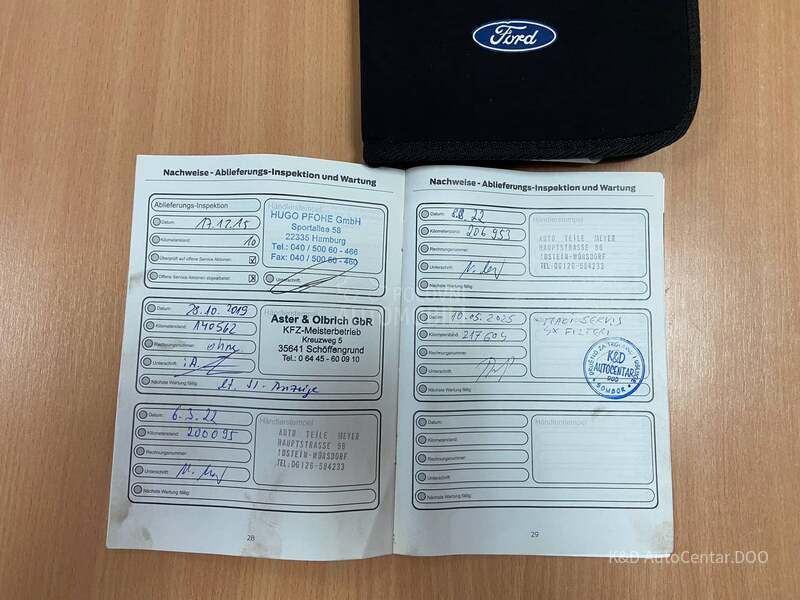 Ford
Nachweise - Ablieferungs-Inspektion und Wartung
Ablieferungs-Inspektion
Datum: 17.12.15
Kilometerstand: 10
Überprüft auf offene Service Aktionen:
Offene Service Aktionen abgearbeitet:
Händlerstempel
HUGO PFOHE GmbH
Sportallee 58
22335 Hamburg
Tel.: 040 / 500 60 - 466
Fax: 040 / 500 60 - 460
Unterschrift:
Datum: 28.10.2019
Kilometerstand: 140562
Rechnungsnummer: ohne
Unterschrift:
Nächste Wartung fällig:
Aster & Olbrich GbR
KFZ-Meisterbetrieb
Kreuzweg 5
35641 Schöffengrund
Tel.: 0 64 45 - 60 09 10
Datum: 6.3.22
Kilometerstand: 200095
Rechnungsnummer:
Unterschrift:
Nächste Wartung fällig:
Händlerstempel
AUTO TEILE MEYER
HAUPTSTRASSE 56
IDSTEIN-WÖRSDORF
TEL:06126-584233
28
Nachweise - Ablieferungs-Inspektion und Wartung
Datum: 6.8.22
Kilometerstand: 206953
Rechnungsnummer:
Unterschrift:
Nächste Wartung fällig:
Händlerstempel
AUTO TEILE MEYER
HAUPTSTRASSE 56
IDSTEIN-WÖRSDORF
TEL:06126-584233
Datum: 10.05.2025
Kilometerstand: 217604
Rechnungsnummer:
Unterschrift:
Nächste Wartung fällig:
SERVIS
FILTERI
K&D
AUTOCENTAR
DOO
SOMBOR
Datum:
Kilometerstand:
Rechnungsnummer:
Unterschrift:
Nächste Wartung fällig:
Händlerstempel
29
K&D AutoCentar.DOO